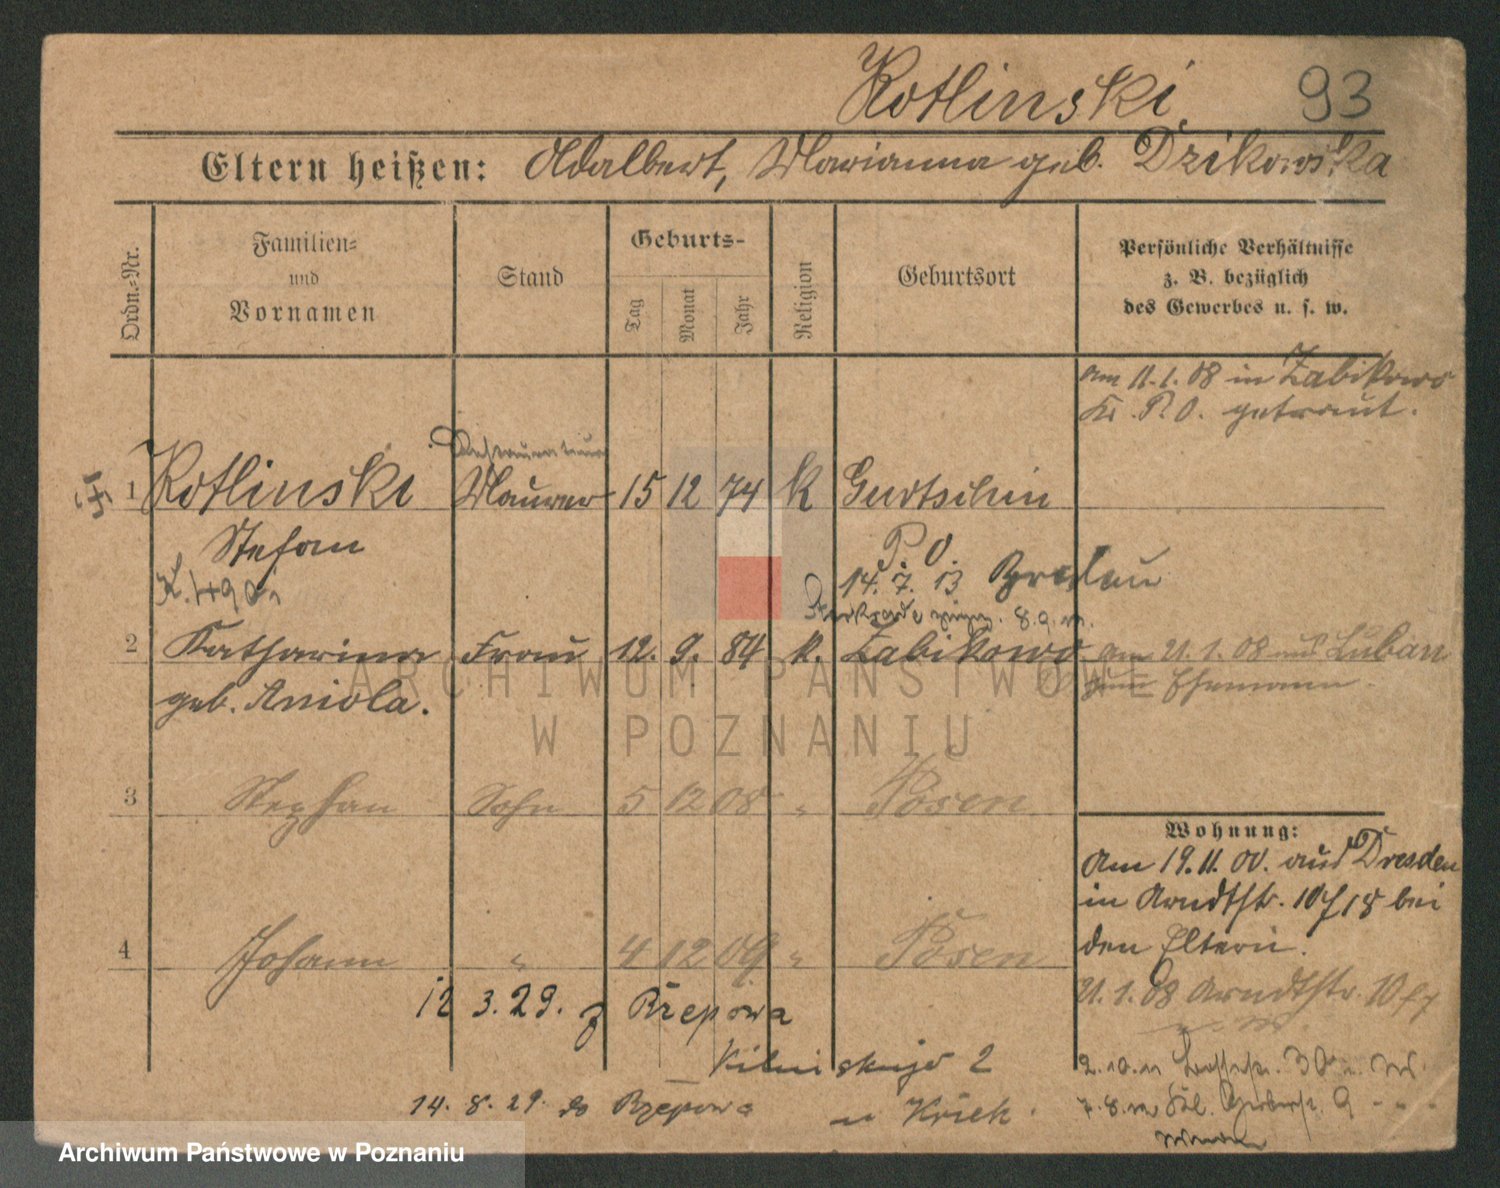 Kotlinski 93
Eltern heißen: Adalbert, Marianna geb. Dzikowska
Ordn.-Nr.
Familien-
und
Vornamen
Stand
Geburts-
Tag
Monat
Jahr
Religion
Geburtsort
Persönliche Verhältnisse
z. B. bezüglich
des Gewerbes u. s. w.
am 11.1.08 in Zabikowo
Kr. P. O. getraut.
1 Kotlinski Maurer 15 12 74 K Gurtschin
Stefan P. O.
14. 7. 13 Breslau
2 Katharina Frau 12. 9. 84 k. Zabikowo am 21.1.08 aus Luban
geb. Aniola. zum Ehemann.
3 Stephan Sohn 5 12 08 " Posen
Wohnung:
Am 19.11.00. aus Dresden
in Arndtstr. 10 f 18 bei
den Eltern.
4 Johann " 4 12 09 " Posen
21.1.08 Arndtstr. 10
12 3.29. z Rzepowa
2
14. 8. 29. do Rzepowa
ARCHIWUM PAŃSTWOWE
W POZNANIU
Archiwum Państwowe w Poznaniu